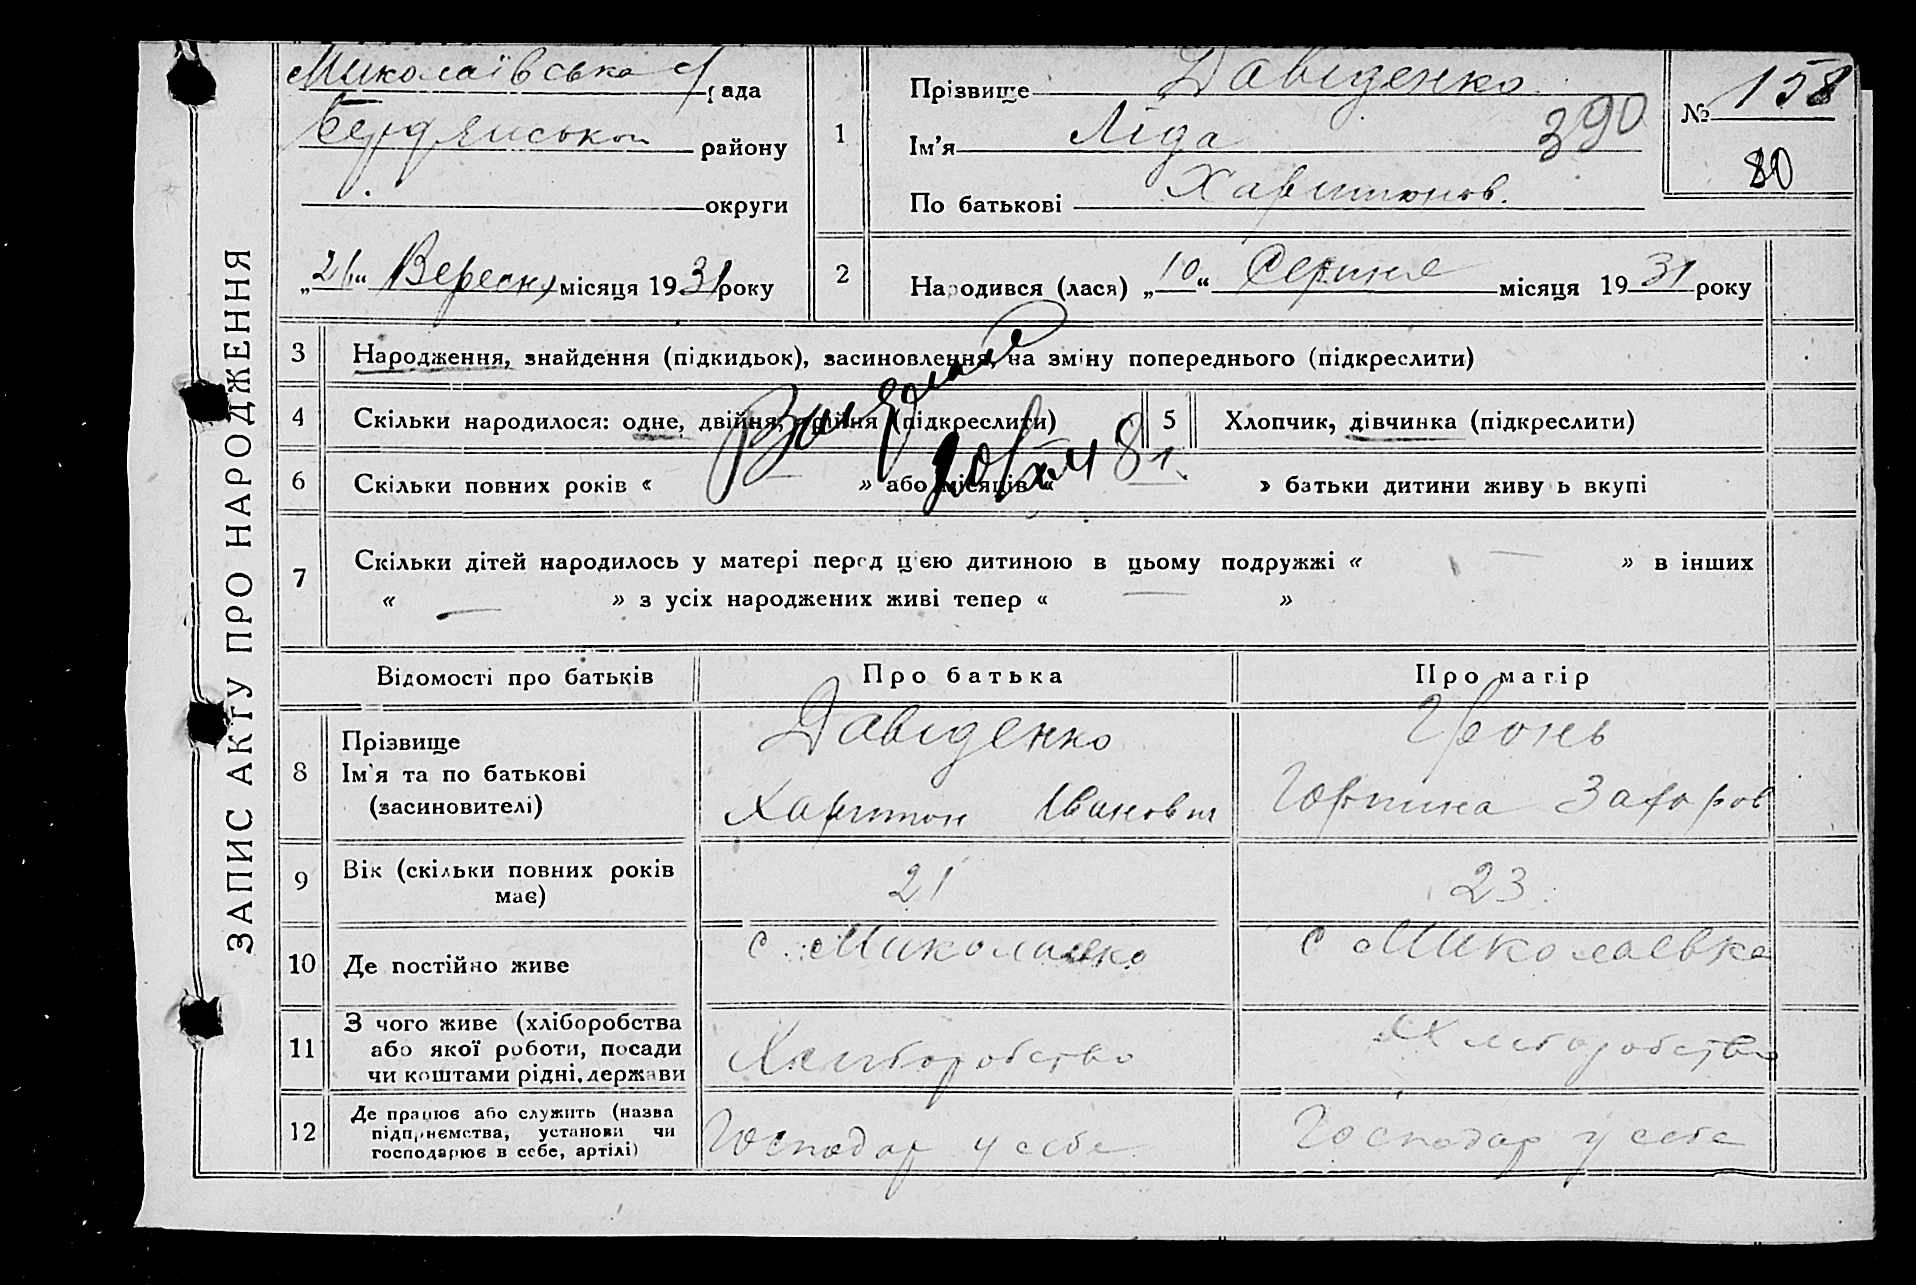 ЗАПИС АКТУ ПРО НАРОДЖЕННЯ
Миколаївська с/рада
Бердянської району
округи
„21“ Вересня місяця 1931 року
1
Прізвище Давіденко
Ім'я Ліда 390
По батькові Харитонов.
№ 158
80
2
Народився (лася) „10“ Серпня місяця 1931 року
3 Народження, знайдення (підкидьок), засиновлення, на зміну попереднього (підкреслити)
4 Скільки народилося: одне, двійня, трійня (підкреслити) 5 Хлопчик, дівчинка (підкреслити)
6 Скільки повних років « — » або місяців « — » батьки дитини живуть вкупі
7 Скільки дітей народилось у матері перед цією дитиною в цьому подружжі « — » в інших
« — » з усіх народжених живі тепер « — »
Відомості про батьків Про батька Про матір
8 Прізвище Давіденко Гронь
Ім'я та по батькові Харитон Іванович Горпина Захаров
(засиновителі)
9 Вік (скільки повних років має) 21 23
10 Де постійно живе с. Миколаевка с Миколаевка
11 З чого живе (хліборобства Хліборобство Хліборобство
або якої роботи, посади
чи коштами рідні, держави
12 Де працює або служить (назва Господар у себе Господар у себе
підприємства, установи чи
господарює в себе, артілі)